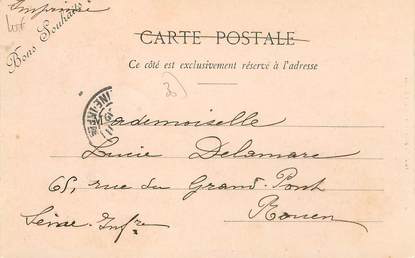 Imprimé
Bons Souhaits
CARTE POSTALE
Ce côté est exclusivement réservé à l'adresse
Mademoiselle
Lucie Delamare
65, rue du Grand-Pont
Rouen
Seine-Infre